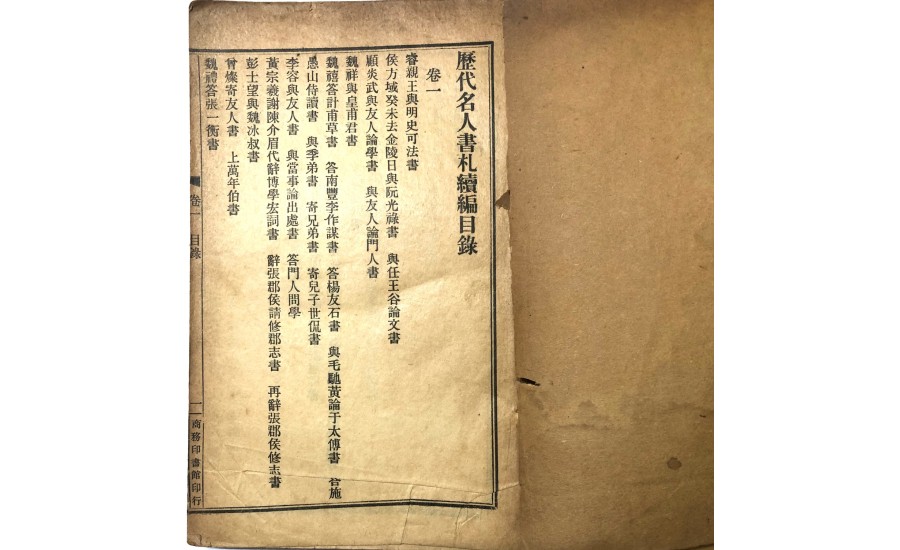 歷代名人書札續編目錄
卷一
睿親王與明史可法書
侯方域癸未去金陵日與阮光祿書 與任王谷論文書
顧炎武與友人論學書 與友人論門人書
魏祥與皇甫君書
魏禧答計甫草書 答南豐李作謀書 答楊友石書 與毛馳黃論于太傅書 答施
愚山侍讀書 與季弟書 寄兄弟書 寄兒子世侃書
李容與友人書 與當事論出處書 答門人問學
黃宗羲謝陳介眉代辭博學宏詞書 辭張郡侯請修郡志書 再辭張郡侯修志書
彭士望與魏冰叔書
曾燦寄友人書 上萬年伯書
魏禮答張一衡書
卷一 目錄
一
商務印書館印行